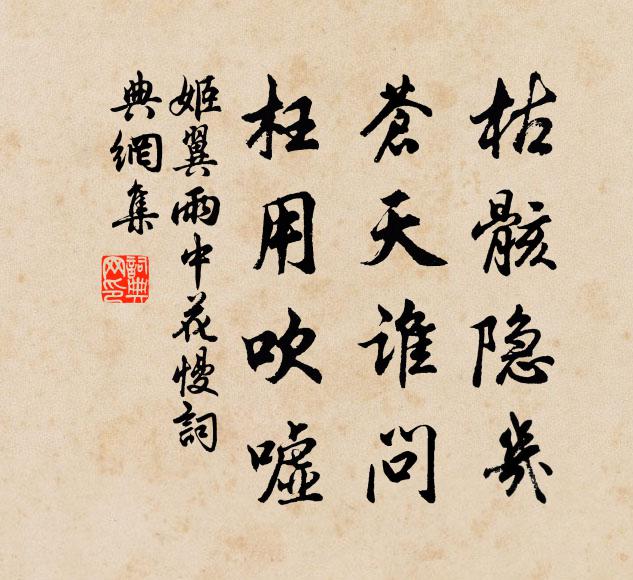 枯骸隐幾
蒼天谁问
枉用吹嘘
姬翼雨中花慢詞
典網集
詞典
网印